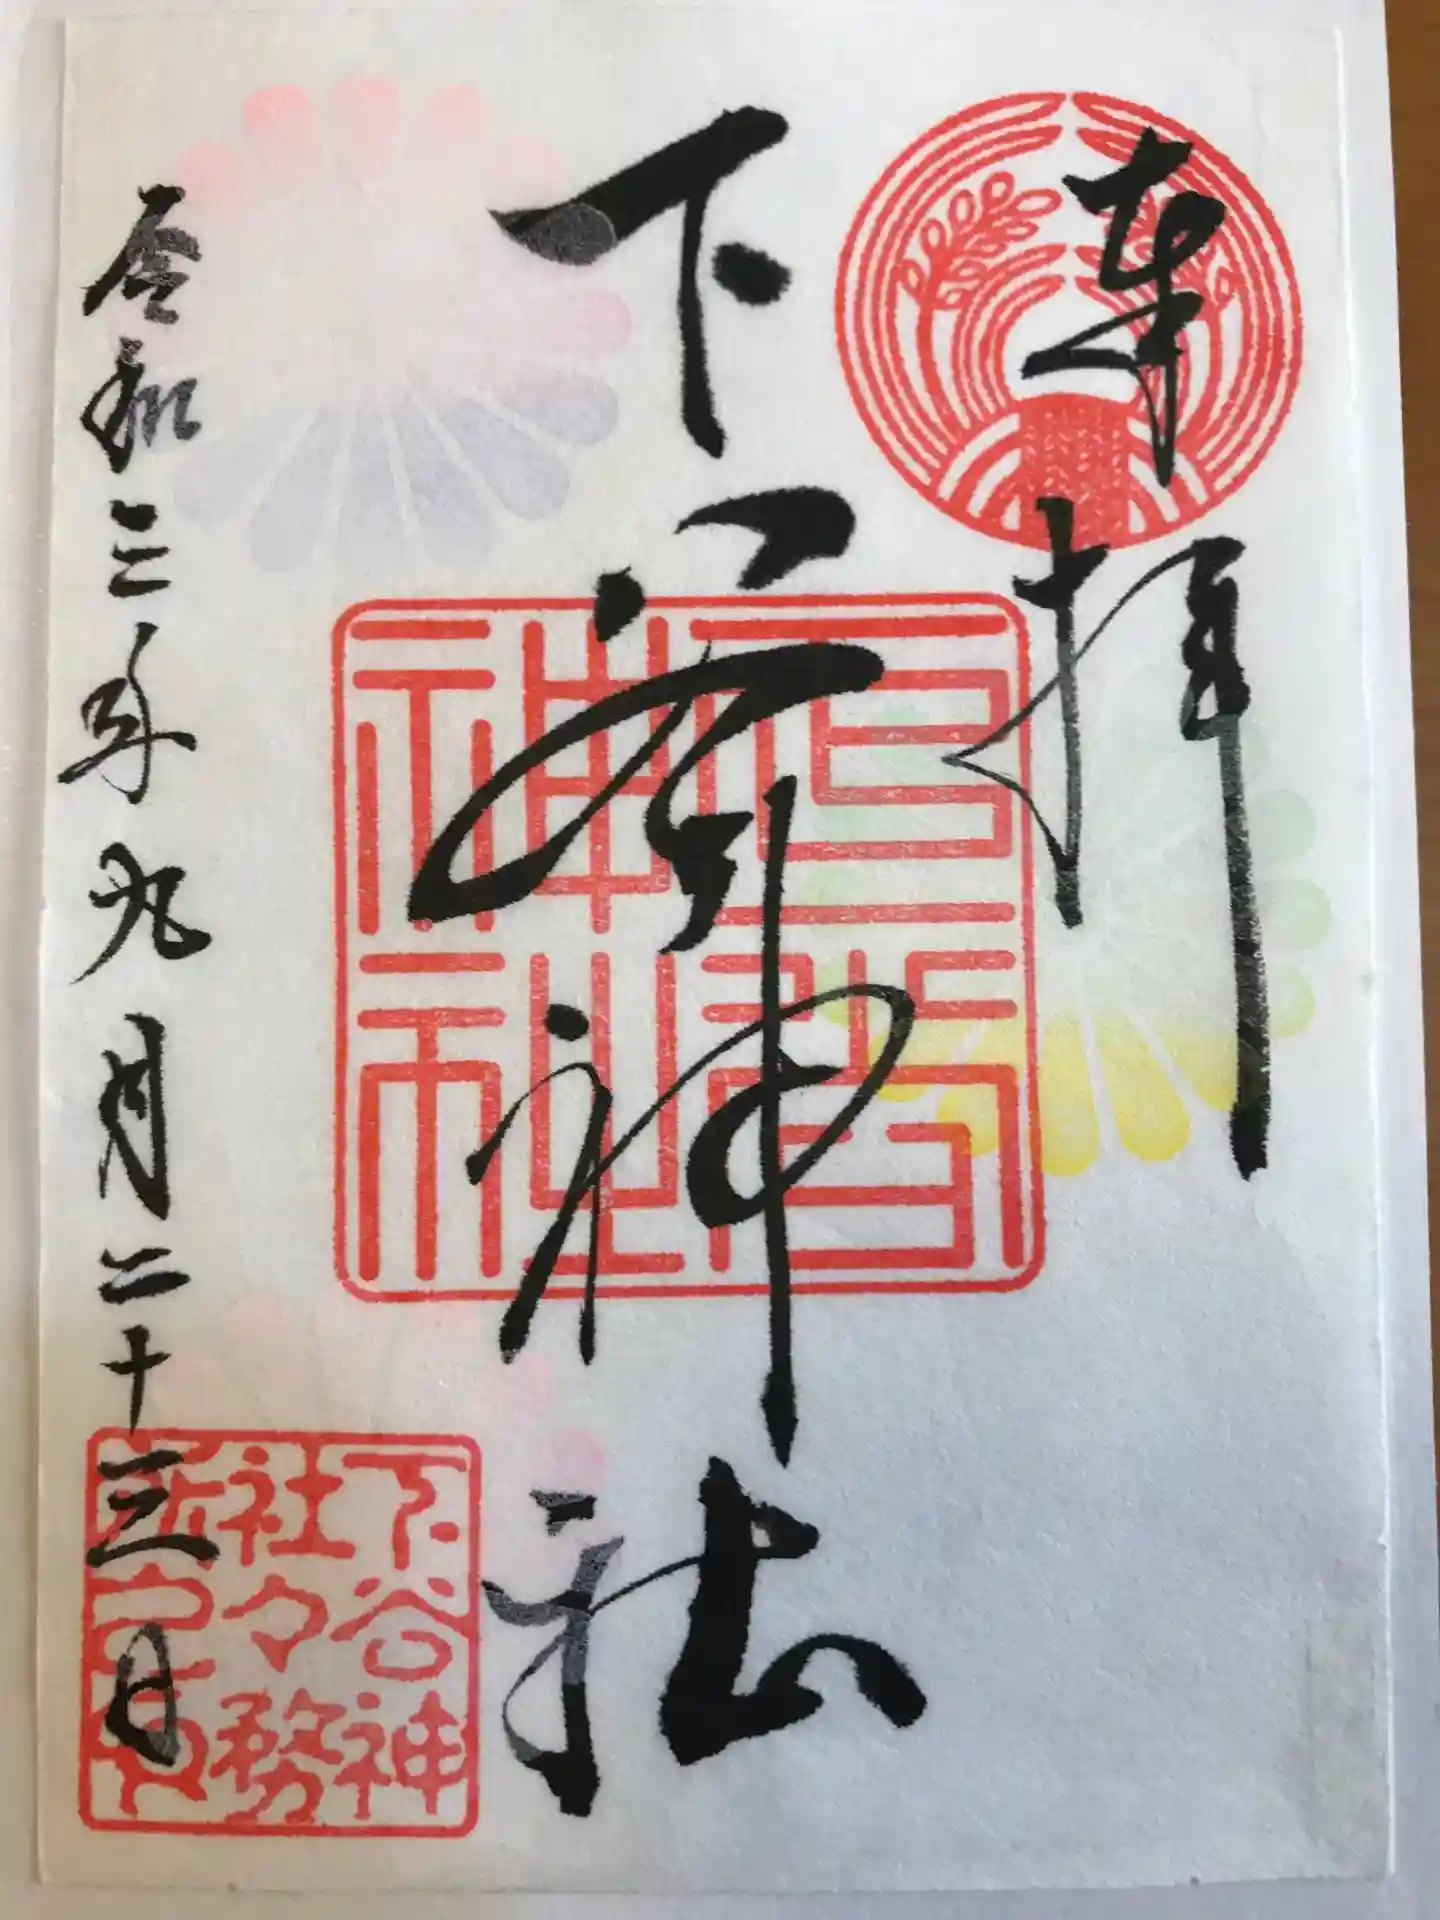 奉拝
下谷神社
令和三年九月二十三日
下谷神
社々務
所之印